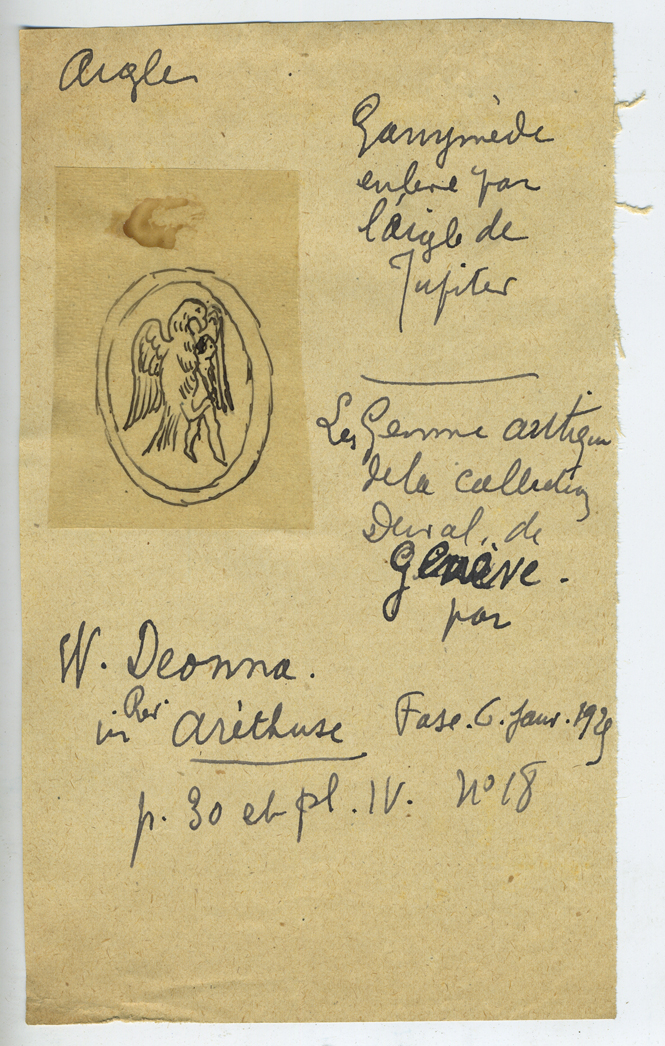 Aigle
Ganymède
enlevé par
l'Aigle de
Jupiter
Les Gemme antique
de la collection
Duval. de
Genève.
par
W. Deonna.
in Rev. Aréthuse Fasc. 6. Janv. 1925
p. 30 et pl. IV. No 18